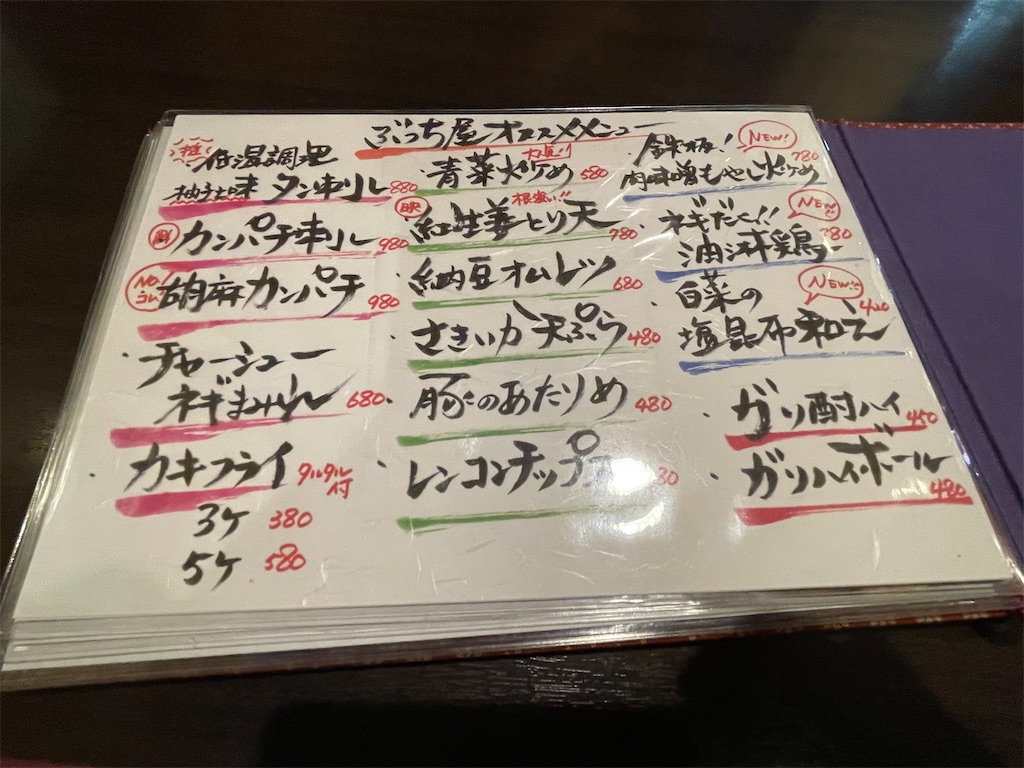 ぶっち屋オススメメニュー
推
低温調理
柚子味 タン刺し 880
鮮
カンパチ刺し 980
NO.
胡麻カンパチ 980
・チャーシュー
ネギまみれ 680
・カキフライ タルタル付
3ケ 380
5ケ 580
青菜炒め 580
映
根強い!!
紅生姜とり天 780
納豆オムレツ 680
さきいか天ぷら 480
・豚のあたりめ 480
・レンコンチップス
NEW!
鉄板!
肉味噌もやし炒め 780
NEW!!
ネギだく!!
油淋鶏 780
NEW!!
白菜の
塩昆布和え 420
・ガリ酎ハイ 450
・ガリハイボール 480